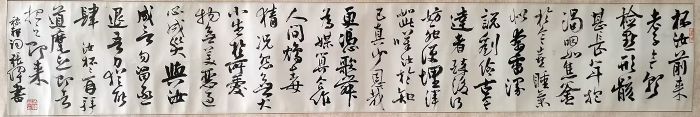 杯汝前来
老子今朝
检点形骸
甚长年抱
渴咽如焦釜
于今喜睡氣
似奔雷汝
説劉伶古今
達者醉後何
妨死便埋渾
如此嘆汝於知
己真少恩哉
更憑歌舞
為媒算合作
人间鸩毒
猜况怨無大
小生於所愛
物無美惡過
必成災與汝
成言勿留亟
退吾力犹能
肆汝杯杯再拜
道麾之即去
招之即来
稼轩词 張 書